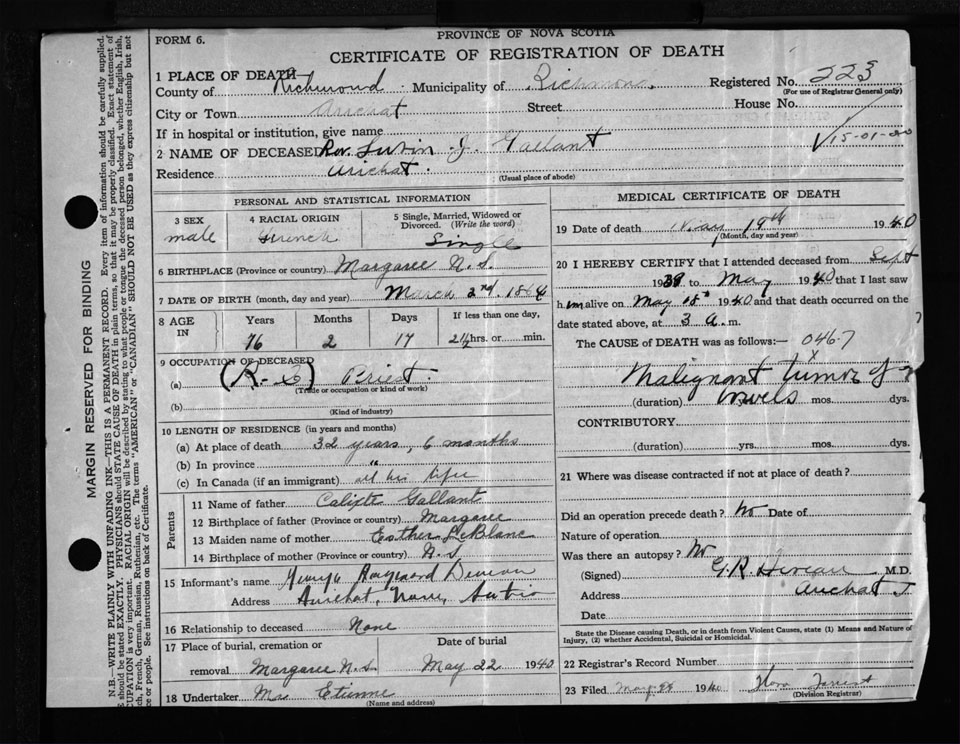 PROVINCE OF NOVA SCOTIA
FORM 6.
CERTIFICATE OF REGISTRATION OF DEATH
1 PLACE OF DEATH
County of Richmond Municipality of Richmond Registered No. 223
(For use of Registrar General only)
City or Town Arichat Street House No.
If in hospital or institution, give name
15-01-20
2 NAME OF DECEASED Rev. J. Gallant
Residence Arichat.
(Usual place of abode)
PERSONAL AND STATISTICAL INFORMATION
3 SEX male
4 RACIAL ORIGIN French
5 Single, Married, Widowed or Divorced. (Write the word) Single
6 BIRTHPLACE (Province or country) Margaree N.S.
7 DATE OF BIRTH (month, day and year) March 2nd. 1864
8 AGE IN Years Months Days If less than one day,
76 2 17 hrs. or min.
9 OCCUPATION OF DECEASED
(a) (R-C) Priest.
(Trade or occupation or kind of work)
(b)
(Kind of industry)
10 LENGTH OF RESIDENCE (in years and months)
(a) At place of death 32 years, 6 months
(b) In province "
(c) In Canada (if an immigrant) all his life
Parents
11 Name of father Calixte Gallant
12 Birthplace of father (Province or country) Margaree
13 Maiden name of mother Esther LeBlanc
14 Birthplace of mother (Province or country) N.S
15 Informant's name
Address Arichat, Nova Scotia
16 Relationship to deceased None
17 Place of burial, cremation or Date of burial
removal Margaree N.S May 22 1940
18 Undertaker Mrs Etienne
(Name and address)
MEDICAL CERTIFICATE OF DEATH
19 Date of death May 19th 1940
(Month, day and year)
20 I HEREBY CERTIFY that I attended deceased from Sept
1939 to May 1940 that I last saw
him alive on May 18th 1940 and that death occurred on the
date stated above, at 3 a.m.
The CAUSE of DEATH was as follows:— 046-7
x
Malignant tumor of
bowels
(duration) yrs. mos. dys.
CONTRIBUTORY
(duration) yrs. mos. dys.
21 Where was disease contracted if not at place of death?
Did an operation precede death? No Date of
Nature of operation
Was there an autopsy? No
(Signed) G.R. M.D.
Address Arichat
Date
State the Disease causing Death, or in death from Violent Causes, state (1) Means and Nature of
Injury, (2) whether Accidental, Suicidal or Homicidal.
22 Registrar's Record Number
23 Filed May 1940
(Division Registrar)
MARGIN RESERVED FOR BINDING
N.B.—WRITE PLAINLY WITH UNFADING INK—THIS IS A PERMANENT RECORD. Every item of information should be carefully supplied.
should be stated EXACTLY. PHYSICIANS should STATE CAUSE OF DEATH in plain terms, so that it may be properly classified. Exact statement of
OCCUPATION is very important. RACIAL ORIGIN will be described by stating to what people or tongue the deceased person belonged, whether English, Irish,
French, German, Russian, Ruthenian, etc. The terms "AMERICAN" or "CANADIAN" SHOULD NOT BE USED as they express citizenship but not
race or people. See instructions on back of Certificate.